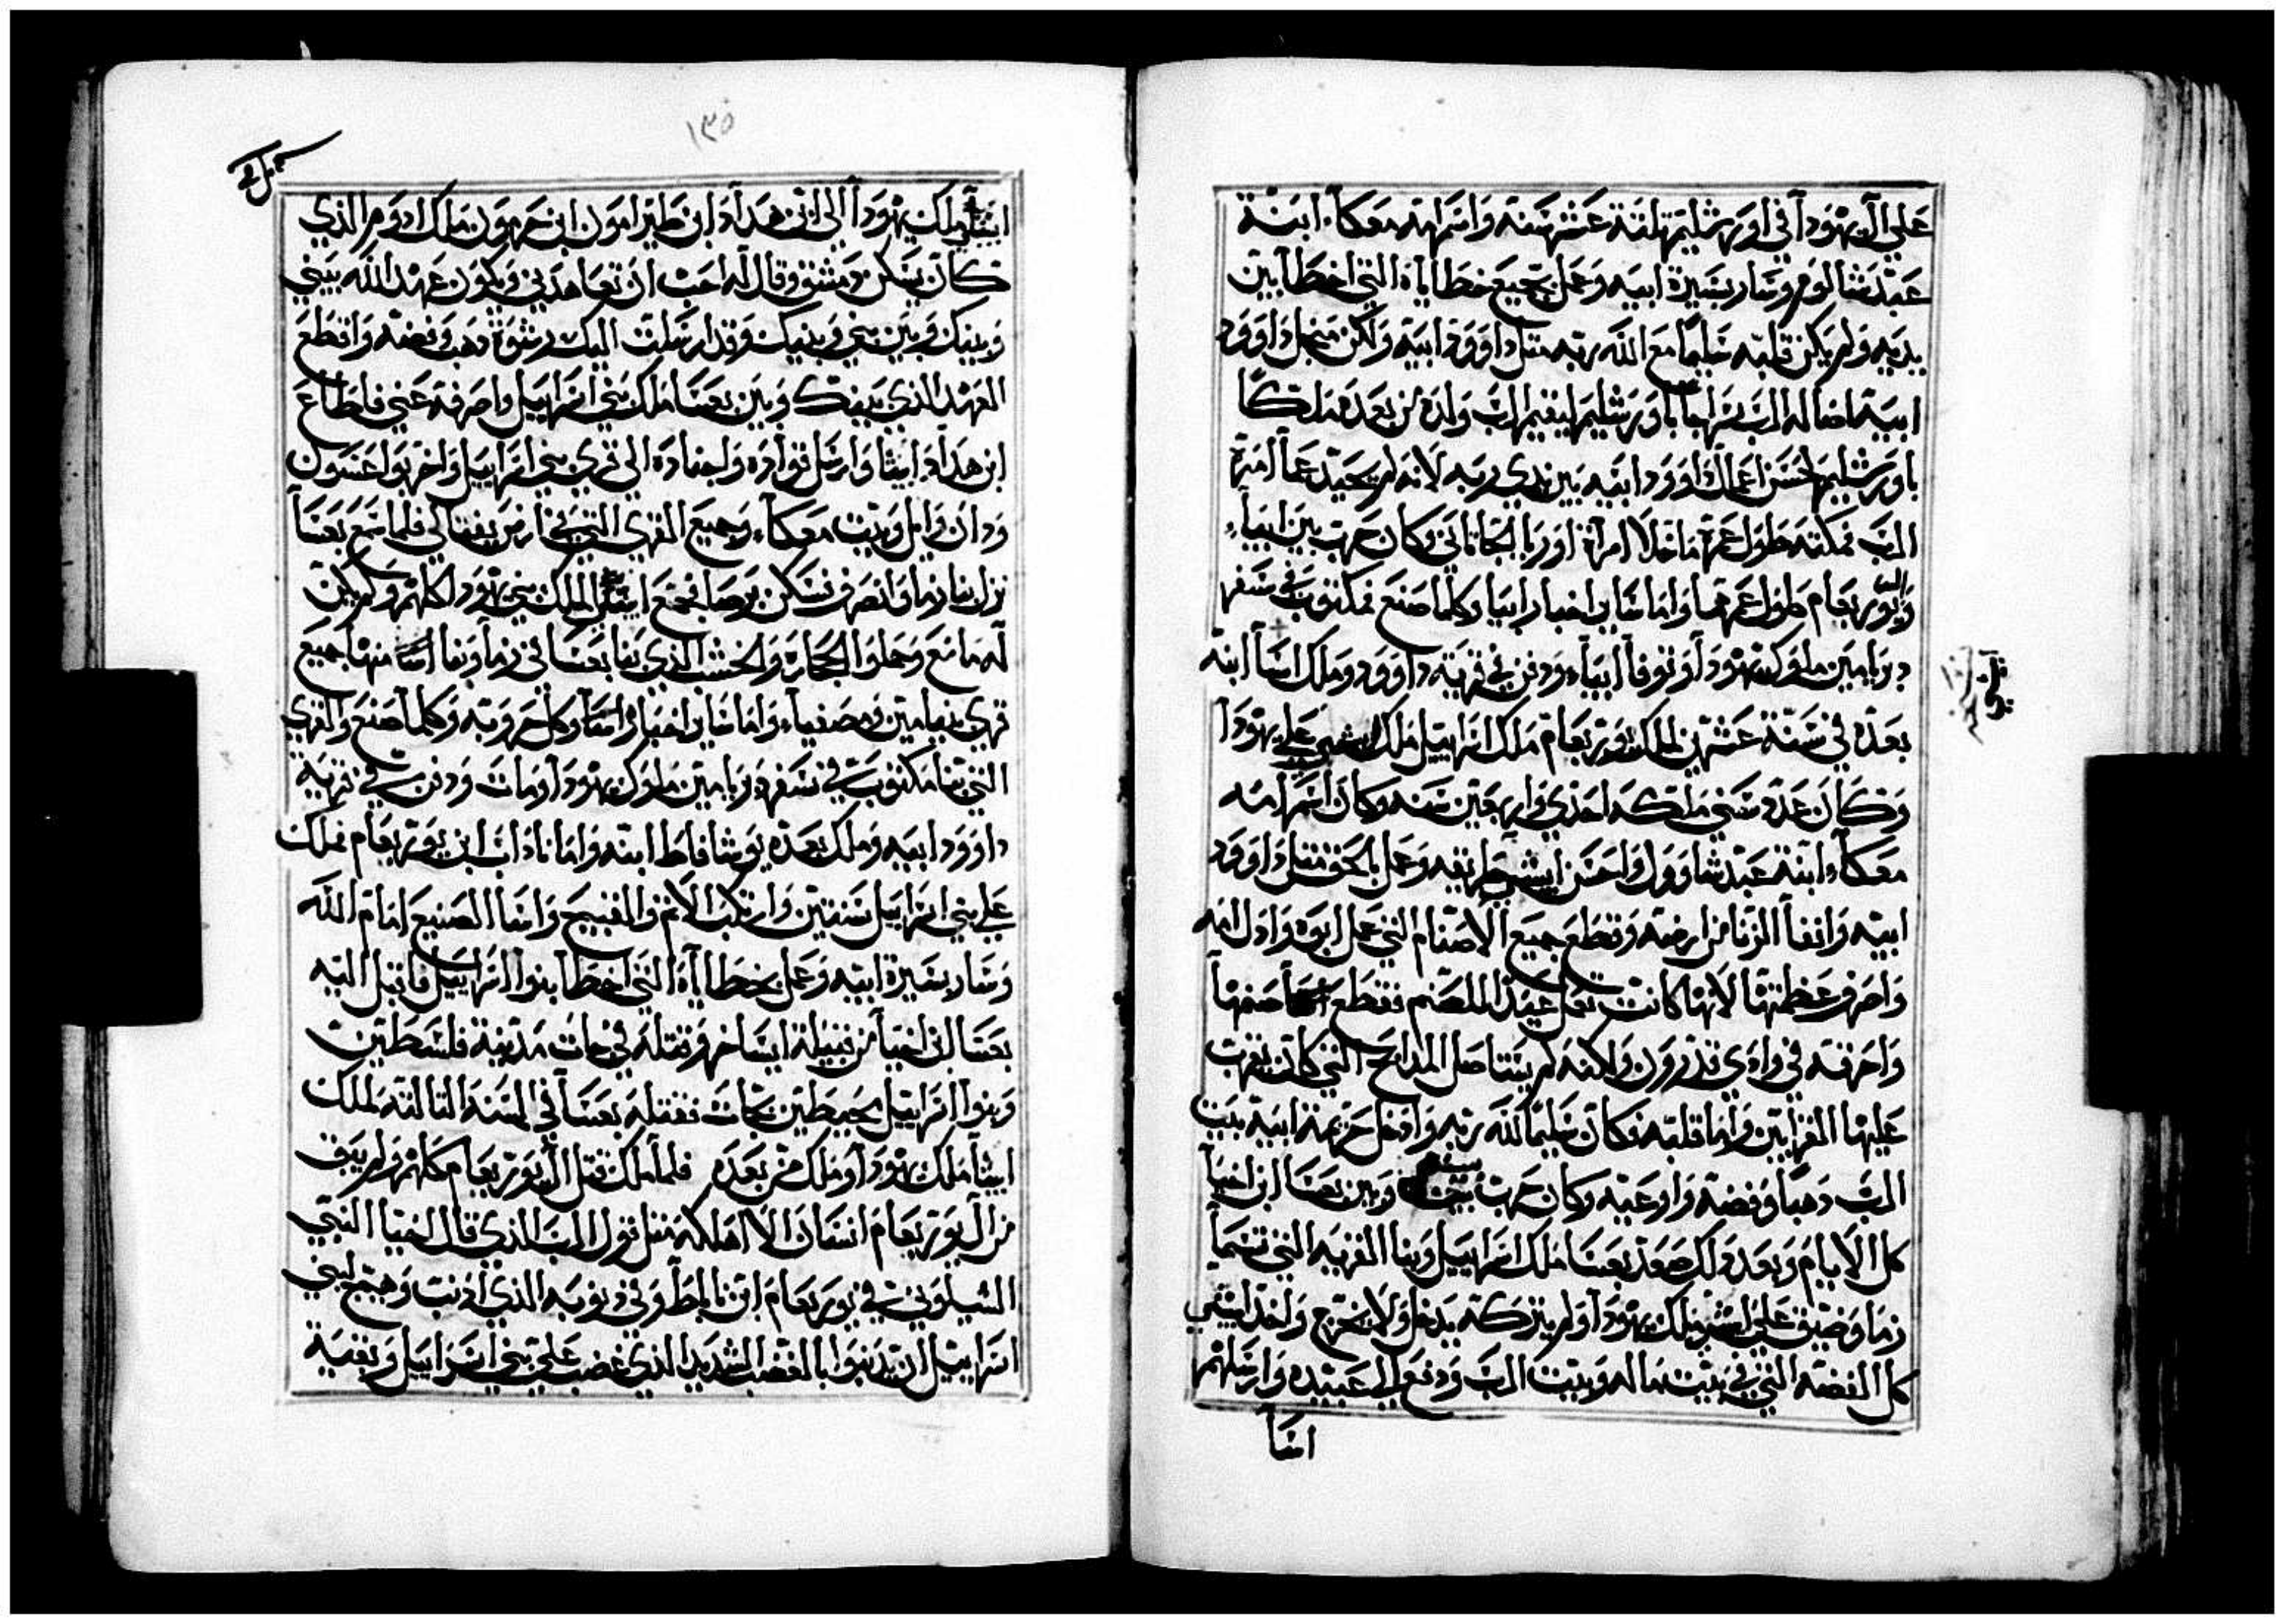 علي ال يهودا في اورشليم ثلثة عشر سنه واسم امه معكا ابنة
عبد شالوم وسار بسيرة ابيه وعمل بجميع خطاياه التي اخطا بين
يديه ولم يكن قلبه سليما مع الله ربه مثل داوود ابيه ولكن من اجل داوود
ابيه اضا له الرب سراجا باورشليم ليقيم الرب ولده من بعده ملكا
باورشليم لحسن اعمال داوود ابيه بين يدي ربه لانه لم يحيد عما امره
الرب فمكثه طول عمره ما خلا امراة اوريا الحاثاني وكان حرب بين ابياء
وال يوربعام طول عمرهما واما ساير اخبار ابيا وكلما صنع فمكتوب في سفر
دبريامين ملوك يهودا وتوفا ابياء ودفن في قرية داوود وملك اسا ابنه
بعده في سنة عشرين لملك يوربعام ملك اسراييل ملك علي يهودا
وكان عدد سني ملكه احدي واربعين سنه وكان اسم امه
معكاء ابنة عبد شاوول واحسن طريقه وعمل بالحق مثل داوود
ابيه وانفا الزنا من ارضه وقطع جميع الاصنام التي عمل ابوه وازل امه
واصرف عظمتها لانها كانت تعمل عيدا للصنم فقطع اسا صنمها
واحرقه في وادي قدرون ولكنه لم يستاصل المدابح التي كان يقرب
عليها القرابين واما قلبه فكان سليما لله ربه وادخل حزيمة ابيه بيت
الرب دهبا وفضه واوعيه وكان حرب بينه وبين بعسا ابن اخيا
كل الايام وبعد دلك صعد بعسا ملك اسراييل وبنا القريه التي تسما
رما وضيق علي ملك يهودا ولم يتركه يدخل ولا يخرج واخد
كل الفضه التي في بيت ماله وبيت الرب ودفع الي عبيده وارسلهم
اسا
١٣٥
ملك يهودا الي ابن هداد ابن طبرامون ابن حزيون ملك ادوم الذي
كان يسكن دمشق وقال له احب ان تعاهدني ويكون عهد الله بيني
وبينك وبين بني وبنيك وقد ارسلت اليك رشوة دهب وفضه واقطع
العهد الذي بينك وبين بعسا ملك بني اسراييل واصرفه عني فاطاع
ابن هداد ايشا وارسل قواده واجناده الي قري بني اسراييل واخربوا عسون
ودان وابل وبيت معكاء وجميع القري التي في ارض يفتالي فلما سمع بعسا
ترك بنا رما وانصرف فسكن برصا فجمع الملك بني يهودا كلهم ولم يكن
له مانع وحملوا الحجاره والخشب الذي بنا بعسا في رما وبنا اسا منها جميع
قري بنيامين ومصفياء واما ساير اخبار اسا وكل حروبه وكلما صنع والقري
التي بنا مكتوبة في سفر دبريامين ملوك يهودا ومات ودفن في قرية
داوود ابيه وملك بعده يوشافاط ابنه واما ناداب ابن يوربعام فملك
علي بني اسراييل سنتين وارتكب الاثم والقبيح واسا الصنيع امام الله
وسار بسيرة ابيه وعمل بخطاياه التي اخطا بنوا اسراييل فاقبل اليه
بعسا ابن اخيا من قبيلة ايساخر وقتله في جاث مدينة فلسطين
وبنوا اسراييل محيطين بجاث فقتله بعسا في السنه الثالثه لملك
ايشا ملك يهودا وملك من بعده فلما ملك قتل ال يوربعام كلهم ولم يبق
من ال يوربعام انسان الا اهلكه مثل قول الرب الذي قال اخيا النبي
الشيلوني في يوربعام ابن ناباط وفي دنوبه الذي ادنب وهيج لبني
اسراييل ان يدنبوا بالغضب الشديد الذي غضب علي بني اسراييل وبقية